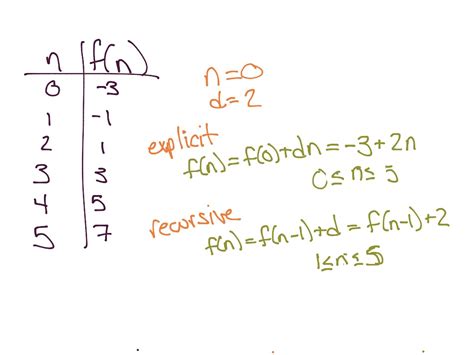 n f(n)
0 -3
1 -1
2 1
3 3
4 5
5 7
n=0
d=2
explicit
f(n)=f(0)+dn=-3+2n
0≤n≤5
recursive
f(n)=f(n-1)+d=f(n-1)+2
1≤n≤5